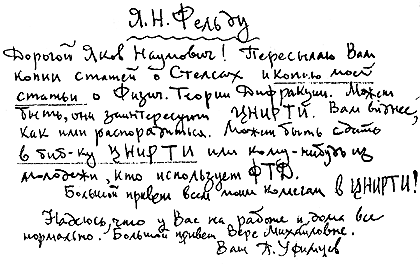 Я.Н. Фельду
Дорогой Яков Наумович! Пересылаю Вам
копии статей о Стелсах и копию моей
статьи о Физич. Теории Дифракции. Может
быть, они заинтересуют ЦНИРТИ. Вам виднее,
как ими распорядиться. Может быть сдать
в биб-ку ЦНИРТИ или кому-нибудь из
молодежи, кто использует ФТД.
Большой привет всем моим коллегам в ЦНИРТИ!
Надеюсь, что у Вас на работе и дома все
нормально. Большой привет Вере Михайловне.
Ваш П. Уфимцев